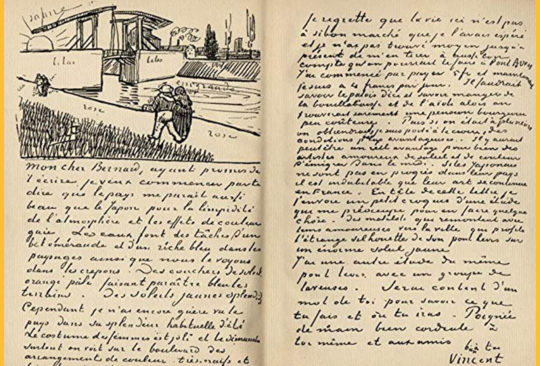 jaune
lilas
lilas
émeraude
rose
rose
Mon cher Bernard, ayant promis de
t'écrire je veux commencer par te
dire que le pays me parait aussi
beau que le Japon pour la limpidité
de l'atmosphère et les effets de couleur
gaie. Les eaux font des tâches d'un
bel émeraude et d'un riche bleu dans les
paysages ainsi que nous le voyons
dans les crepons. Des couchers de soleil
orangé pâle faisant paraître bleu les
terrains. Des soleils jaunes splendides
Cependant je n'ai encore guère vu le
pays dans sa splendeur habituelle d'été
Le costume des femmes est joli et le dimanche
surtout on voit sur le boulevard des
arrangements de couleur très naifs et
Je regrette que la vie ici n'est pas
à si bon marché que je l'avais espéré
et je n'ai pas trouvé moyen jusqu'à
présent de m'en tirer à aussi bon
compte qu'on pourrait le faire à Pont Aven.
J'ai commencé par payer 5 fr et maintenant
je suis à 4 francs par jour. Il faudrait
savoir le patois d'ici et savoir manger de
la bouillabaisse et de l'aïoli alors on
trouverait surement une pension bourgeoise
peu coûteuse. Puis si on était à plusieurs
on obtiendrait je suis porté à le croire, des
conditions plus avantageuses. Il y aurait
peut-être un réel avantage pour bien des
artistes amoureux de soleil et de couleur
d'émigrer dans le midi. Si les Japonais
ne sont pas en progrès dans leur pays
il est indubitable que leur art se continue
en France. En tête de cette lettre je
t'envoie un petit croquis d'une étude
qui me préoccupe pour en faire quelque
chose. Des matelots qui remontent avec
leurs amoureuses vers la ville qui profile
l'étrange silhouette de son pont levis sur
un énorme soleil jaune.
J'ai une autre étude du même
pont levis avec un groupe de
laveuses. Serai content d'un
mot de toi pour savoir ce que
tu fais et où tu iras. Poignée
de main bien cordiale à
toi même et aux amis
b. à t.
Vincent